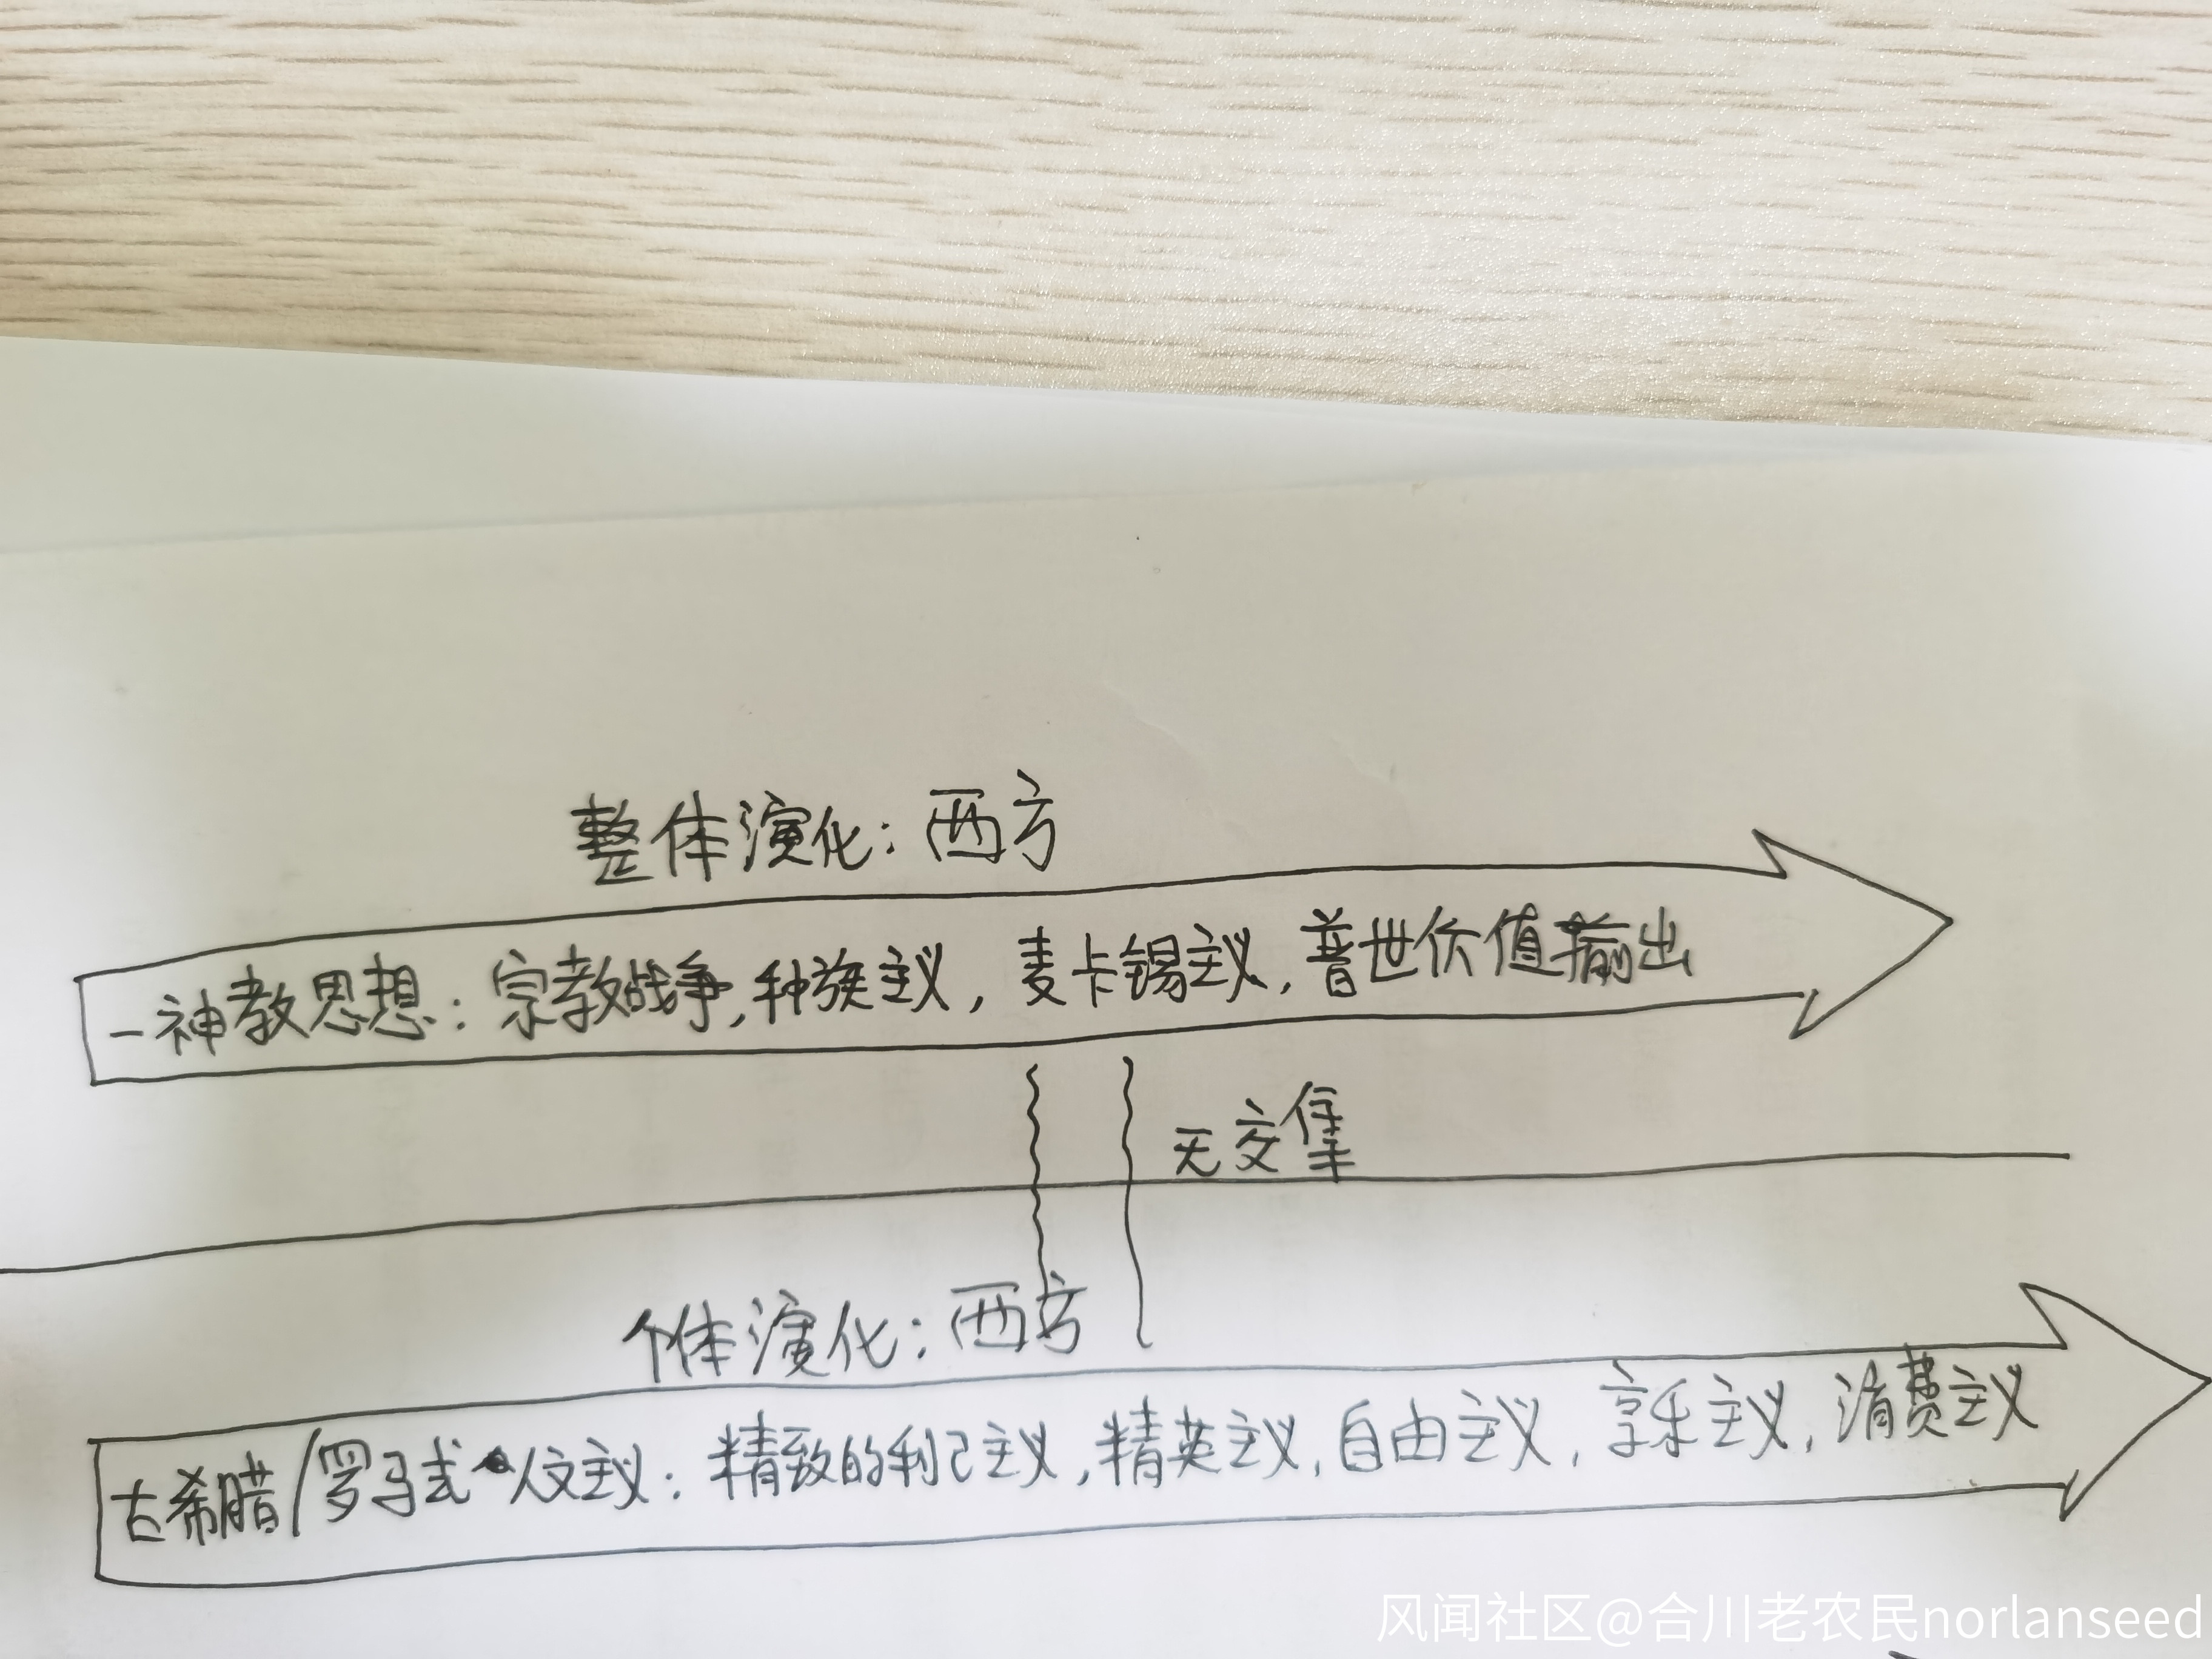 整体演化：西方
一神教思想：宗教战争，种族主义，麦卡锡主义，普世价值输出
无交集
个体演化：西方
古希腊/罗马式人文主义：精致的利己主义，精英主义，自由主义，享乐主义，消费主义
风闻社区@合川老农民norlanseed